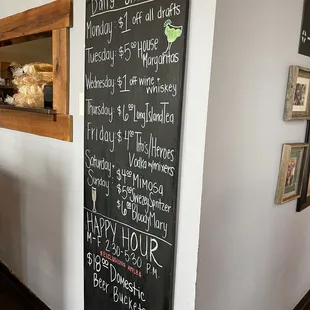 Daily
Monday: $1 off all drafts
Tuesday: $5 House
Margaritas
Wednesday: $1 off wine +
whiskey
Thursday: $6 Long Island Tea
Friday: $4 Titos/Heroes
Vodka w/mixers
Saturday: $4 Mimosa
Sunday: $5
$6 Bloody Mary
HAPPY HOUR
M-F 2:30-5:30 P.M.
$18 Domestic
Beer Buckets